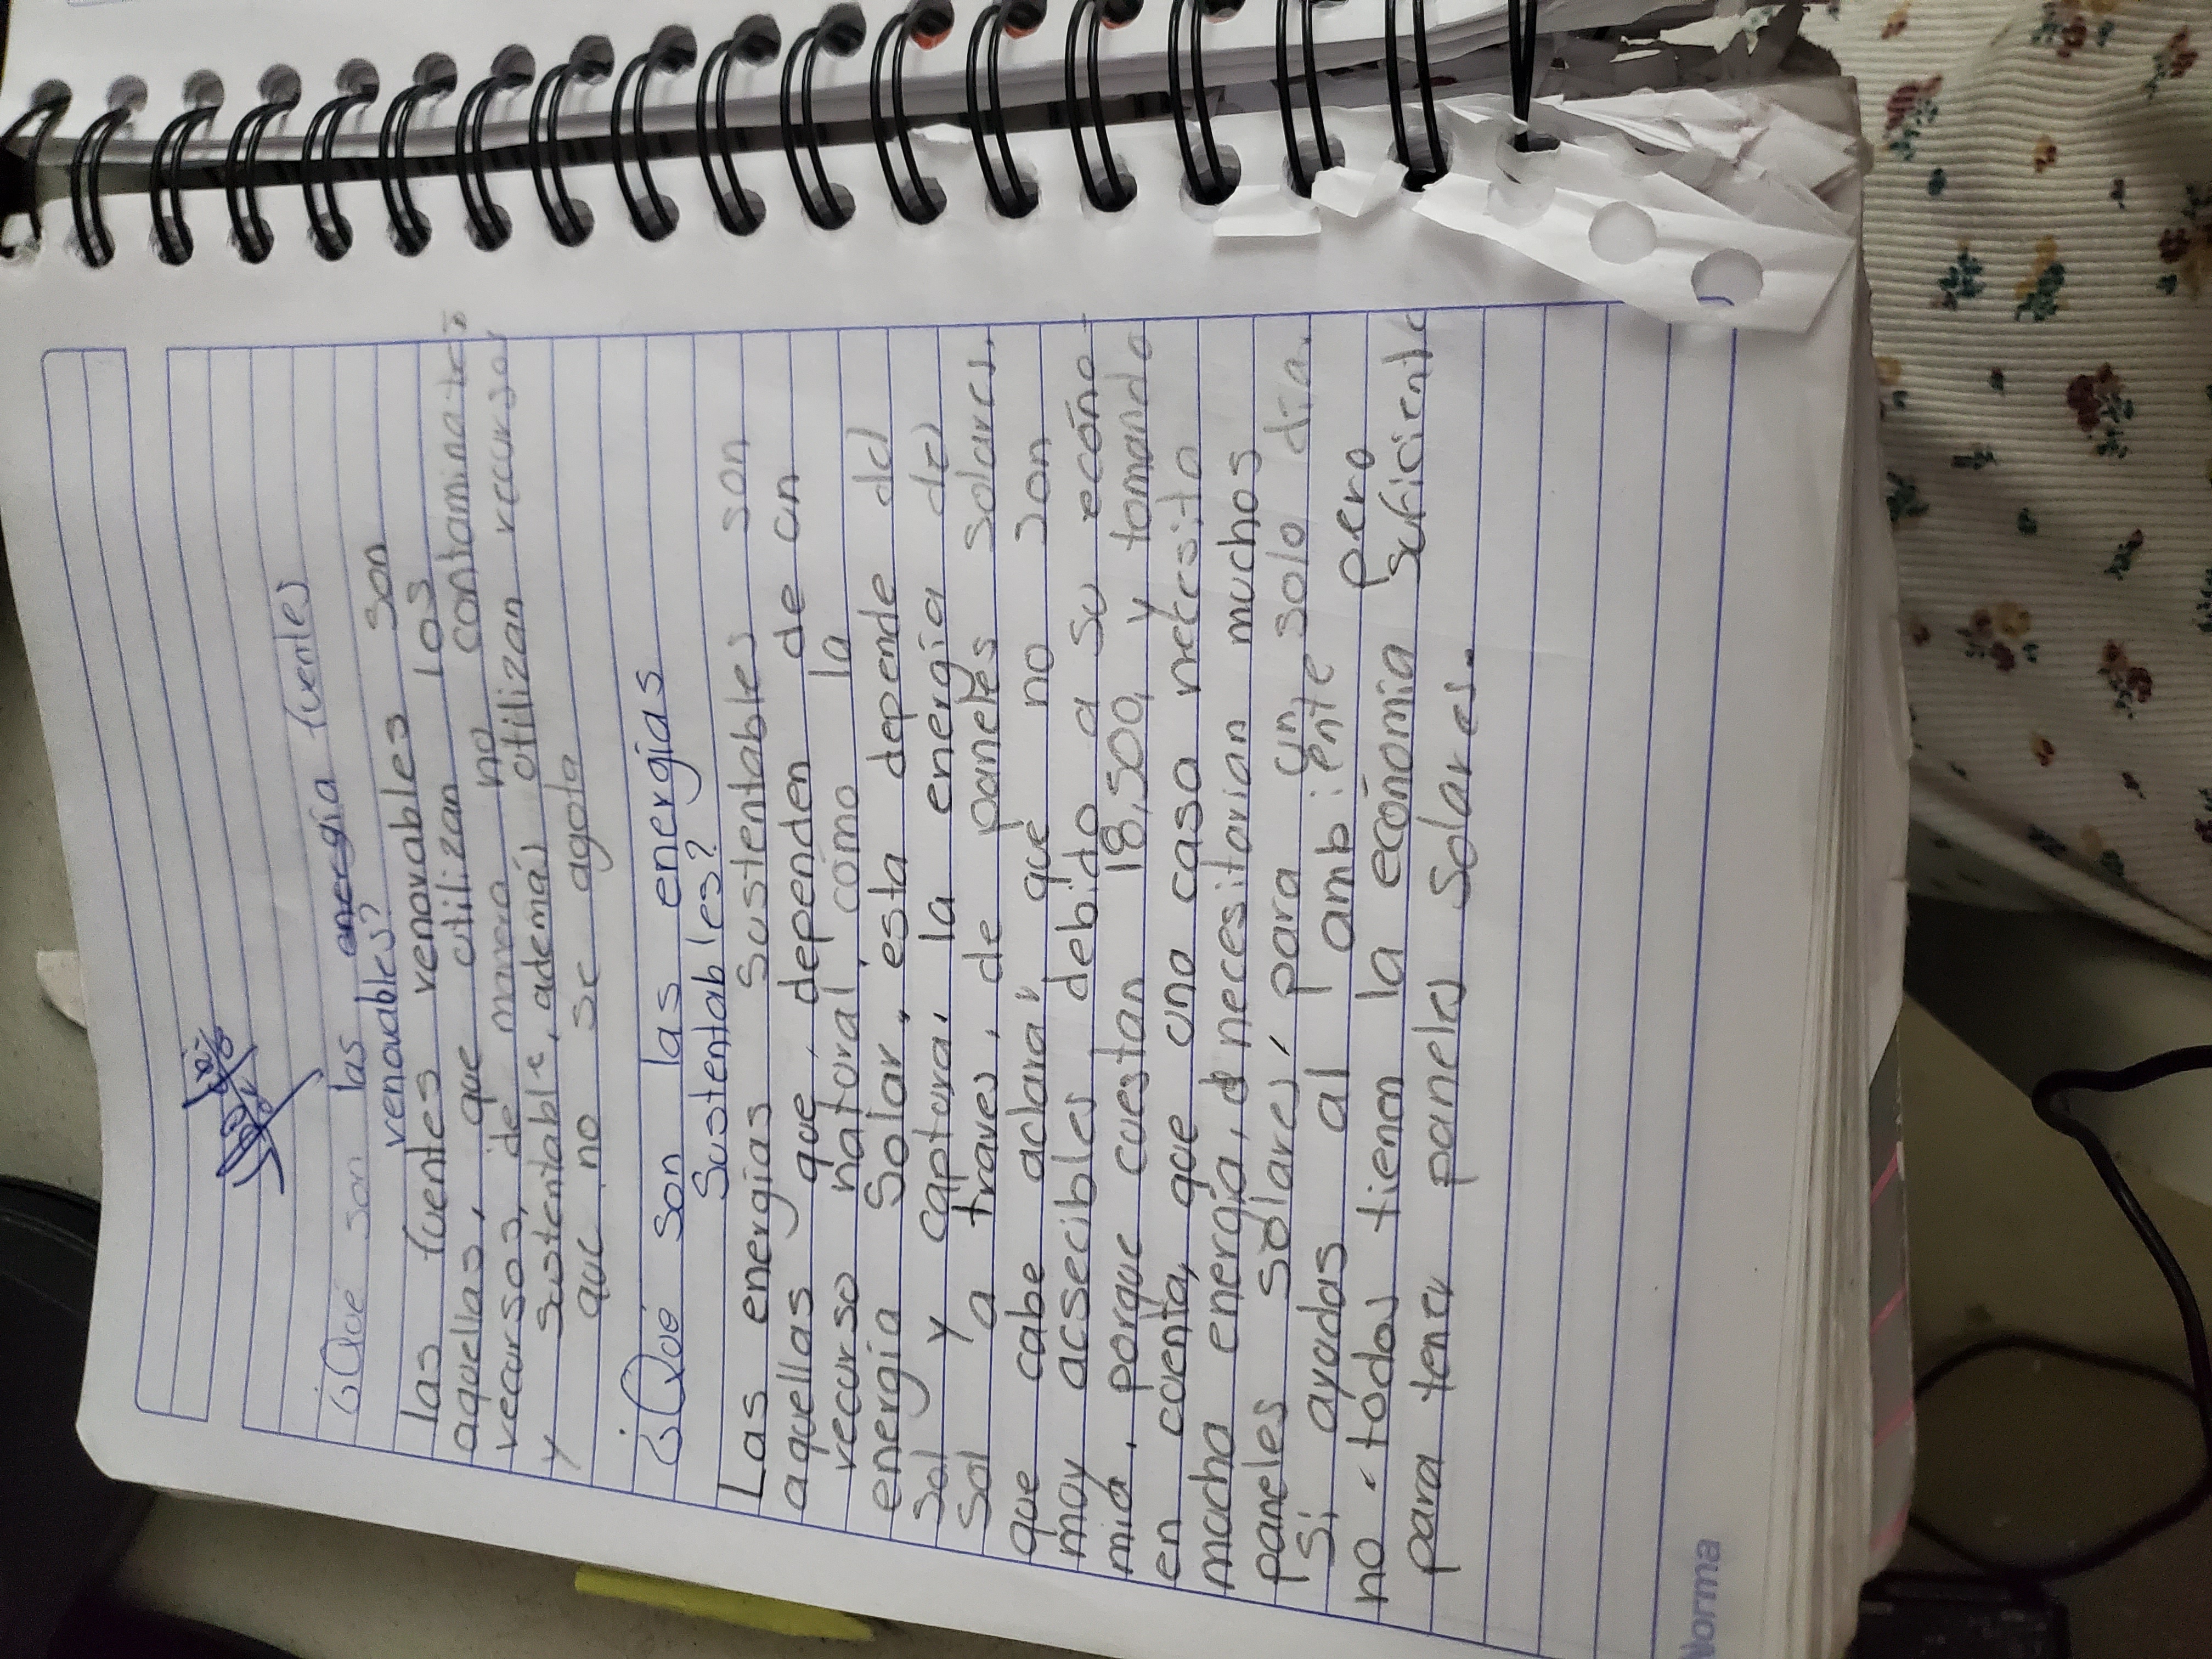 ¿Qué son las anergía fuentes
renovables?
las fuentes renovables son
aquellas, que utilizan los
recursos, de manera no contaminates
y sustentable, además utilizan recursos
que no se agota
¿Qué son las energías
Sustentables?
Las energías Sustentables son
aquellas que, dependen de un
recurso natural como la
energía Solar, esta depende del
sol y captura, la energía del
sol a traves, de paneles solares,
que cabe aclarar que no son
muy acsecibles debido a su ecóno
mía, porque cuestan 18,500, y tomando
en cuenta, que una casa necesita
mucha energía, necesitarian muchos
paneles solares, para un solo día.
Si ayudas al ambiente pero
no todos tienen la ecónomia suficiente
para tener paneles Solares.
Norma